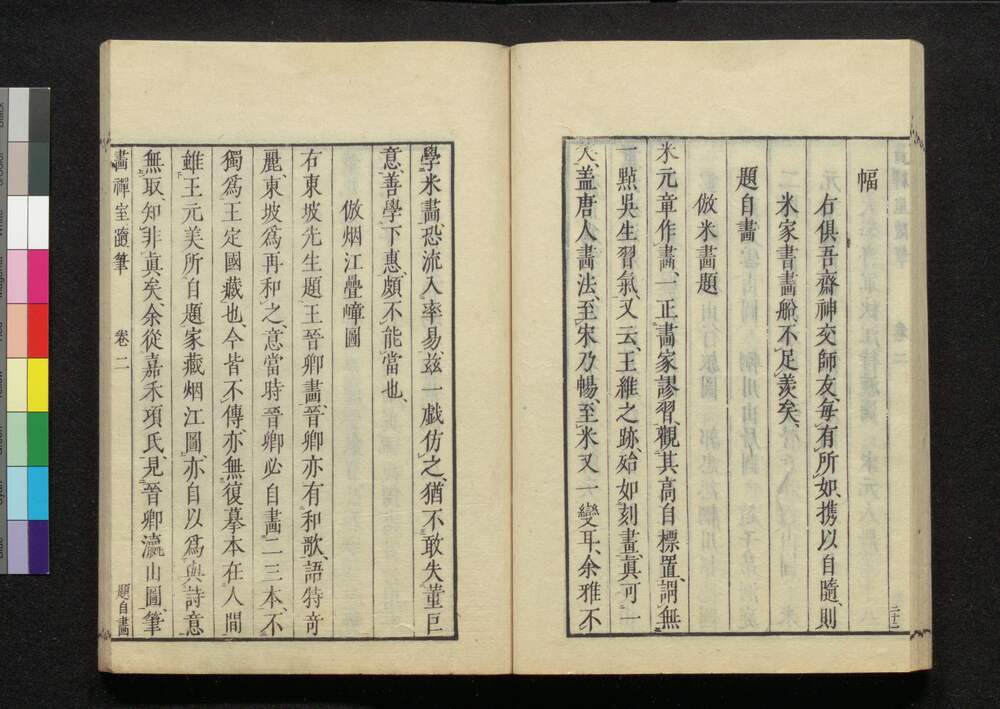 幅
右俱吾齋神交師友每有所如携以自隨則
米家書畫舩不足羨矣
題自畫
倣米畫題
米元章作畫一正畫家謬習觀其高自標置謂無
一點吳生習氣又云王維之跡殆如刻畫真可一
笑盖唐人畫法至宋乃暢至米又一變耳余雅不
二十一
學米畫恐流入率易兹一戱仿之猶不敢失董巨
意善學下惠頗不能當也
倣烟江疊嶂圖
右東坡先生題王晉卿畫晉卿亦有和歌語特奇
麗東坡爲再和之意當時晉卿必自畫二三本不
獨爲王定國藏也今皆不傳亦無復摹本在人間
雖王元美所自題家藏烟江圖亦自以爲與詩意
無取知非真矣余從嘉禾項氏見晉卿瀛山圖筆
畫禪室隨筆 卷二 題自畫